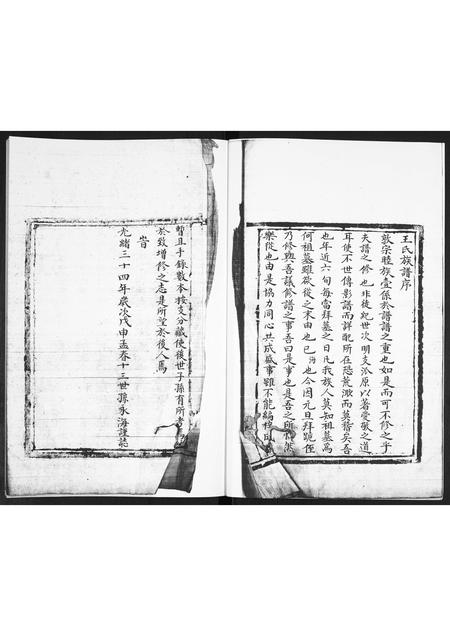 王氏族譜序
敦宗睦族壹係於譜譜之重也如是而可不修之乎
夫譜之修也非徒紀世次明支派原以著愛敬之道
耳使不世傳影譜而詳配所在恐荒渺而莫稽矣吾
也年近六旬每當拜墓之日凡我族人莫知祖墓為
何祖墓雖欲從之末由也已 也今因元旦拜跪侄
乃修與吾議修譜之事吾曰是事也是吾之所 
樂從也由是協力同心共成盛事雖不能編
暫且手錄數本按支分藏使後世子孫有所
於致增修之志是所望於後人焉
旹
光緒三十四年歲次戊申孟春十三世孫永海謹誌